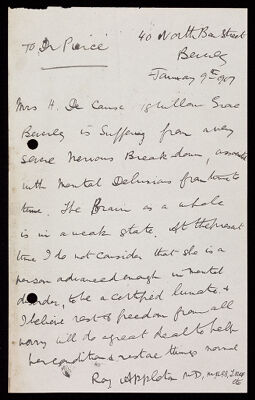 To Dr Pierce
40 North Bar Street
Beverley
January 9th 1907
Mrs H. De Cause 18 Willow Grove
Beverley is suffering from a very
severe Nervous Breakdown, associated
with Mental Delusions from time to
time. The Brain as a whole
is in a weak state. At the present
time I do not consider that she is a
person advanced enough in mental
disorder, to be a certified lunatic, &
I believe rest & freedom from all
worry will do a great deal to help
her condition & restore things normal
Roy Appleton M.D, M.R.C.S, L.R.C.P
etc